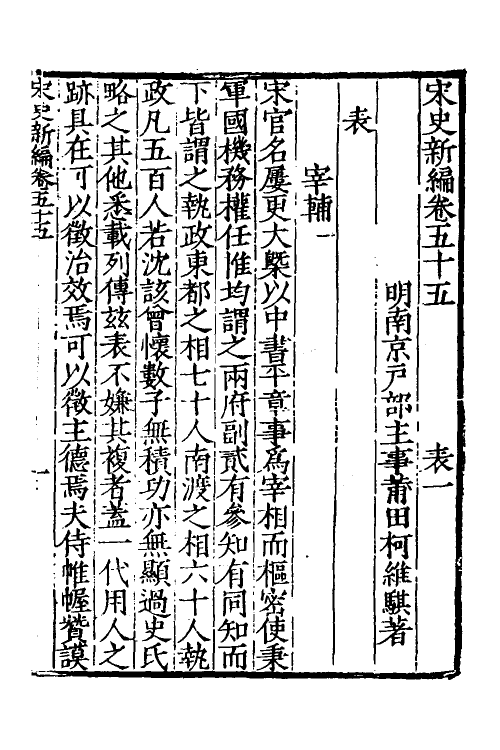 宋史新編卷五十五　表一
明南京戸部主事莆田柯維騏著
表
宰輔一
宋官名屢更大槩以中書平章事爲宰相而樞密使秉
軍國機務權任惟均謂之兩府副貳有參知有同知而
下皆謂之執政東都之相七十人南渡之相六十人執
政凡五百人若沈該曾懷數子無積功亦無顯過史氏
略之其他悉載列傳兹表不嫌其複者蓋一代用人之
跡具在可以徵治效焉可以徵主德焉夫侍帷幄贊謨
宋史新編卷五十五　一